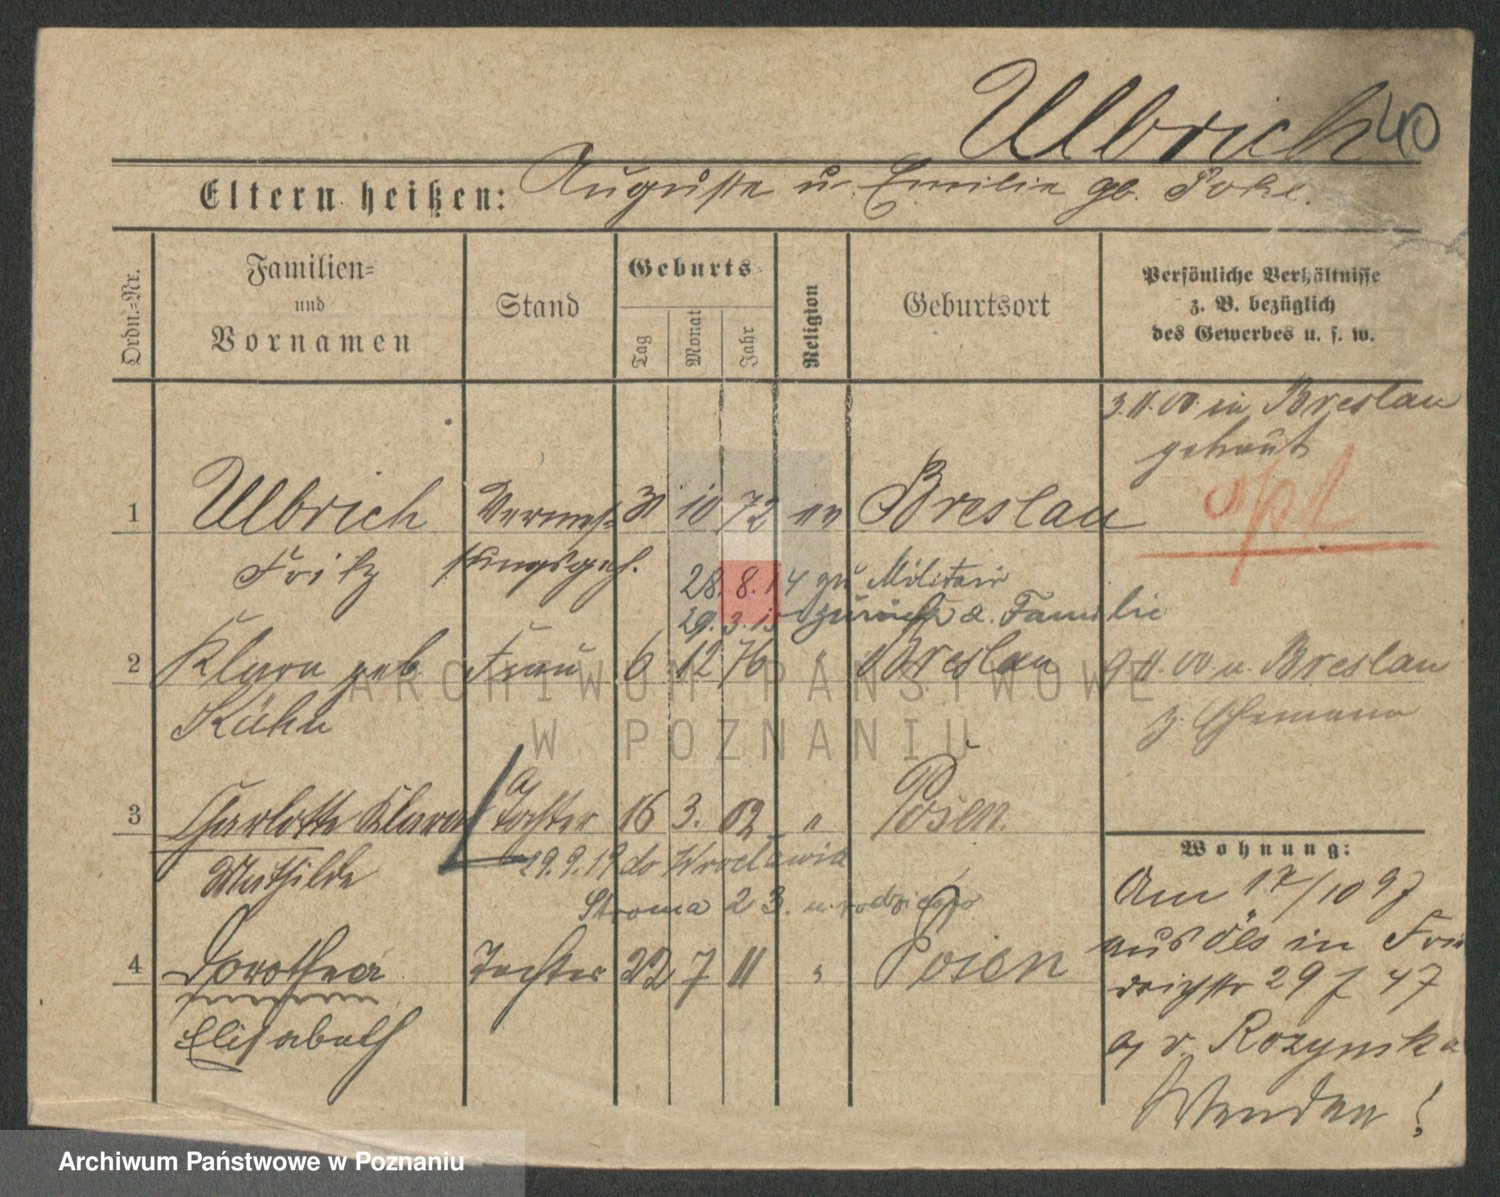 Ulbrich 40
Eltern heißen: Auguste u. Emilie gb. Pohl.
Ordn.-Nr.
Familien-
und
Vornamen
Stand
Geburts-
Tag
Monat
Jahr
Religion
Geburtsort
Persönliche Verhältnisse
z. B. bezüglich
des Gewerbes u. s. w.
3.11.00 in Breslau
getraut
1 Ulbrich Vermes- 10 72 ev Breslau
Fritz sungsgeh.
28.8.14 zu Militair
29.3.15 zurück z. Familie
2 Klara geb. Frau 6 12 76 " Breslau 9.11.00 v. Breslau
Kühn z. Ehemann
3 Charlotte Klara Tochter 16 3. 02 " Posen.
Mathilde 29.9.19 do Wrocławia
Stroma 23. u rodziców
4 Dorothea Tochter 22 7 11 " Posen
Elisabeth
Wohnung:
Am 17/10 97
aus Öls in Frie
drichstr 29 47
v. Rozynska
Wenden!
ARCHIWUM PAŃSTWOWE
W POZNANIU
Archiwum Państwowe w Poznaniu